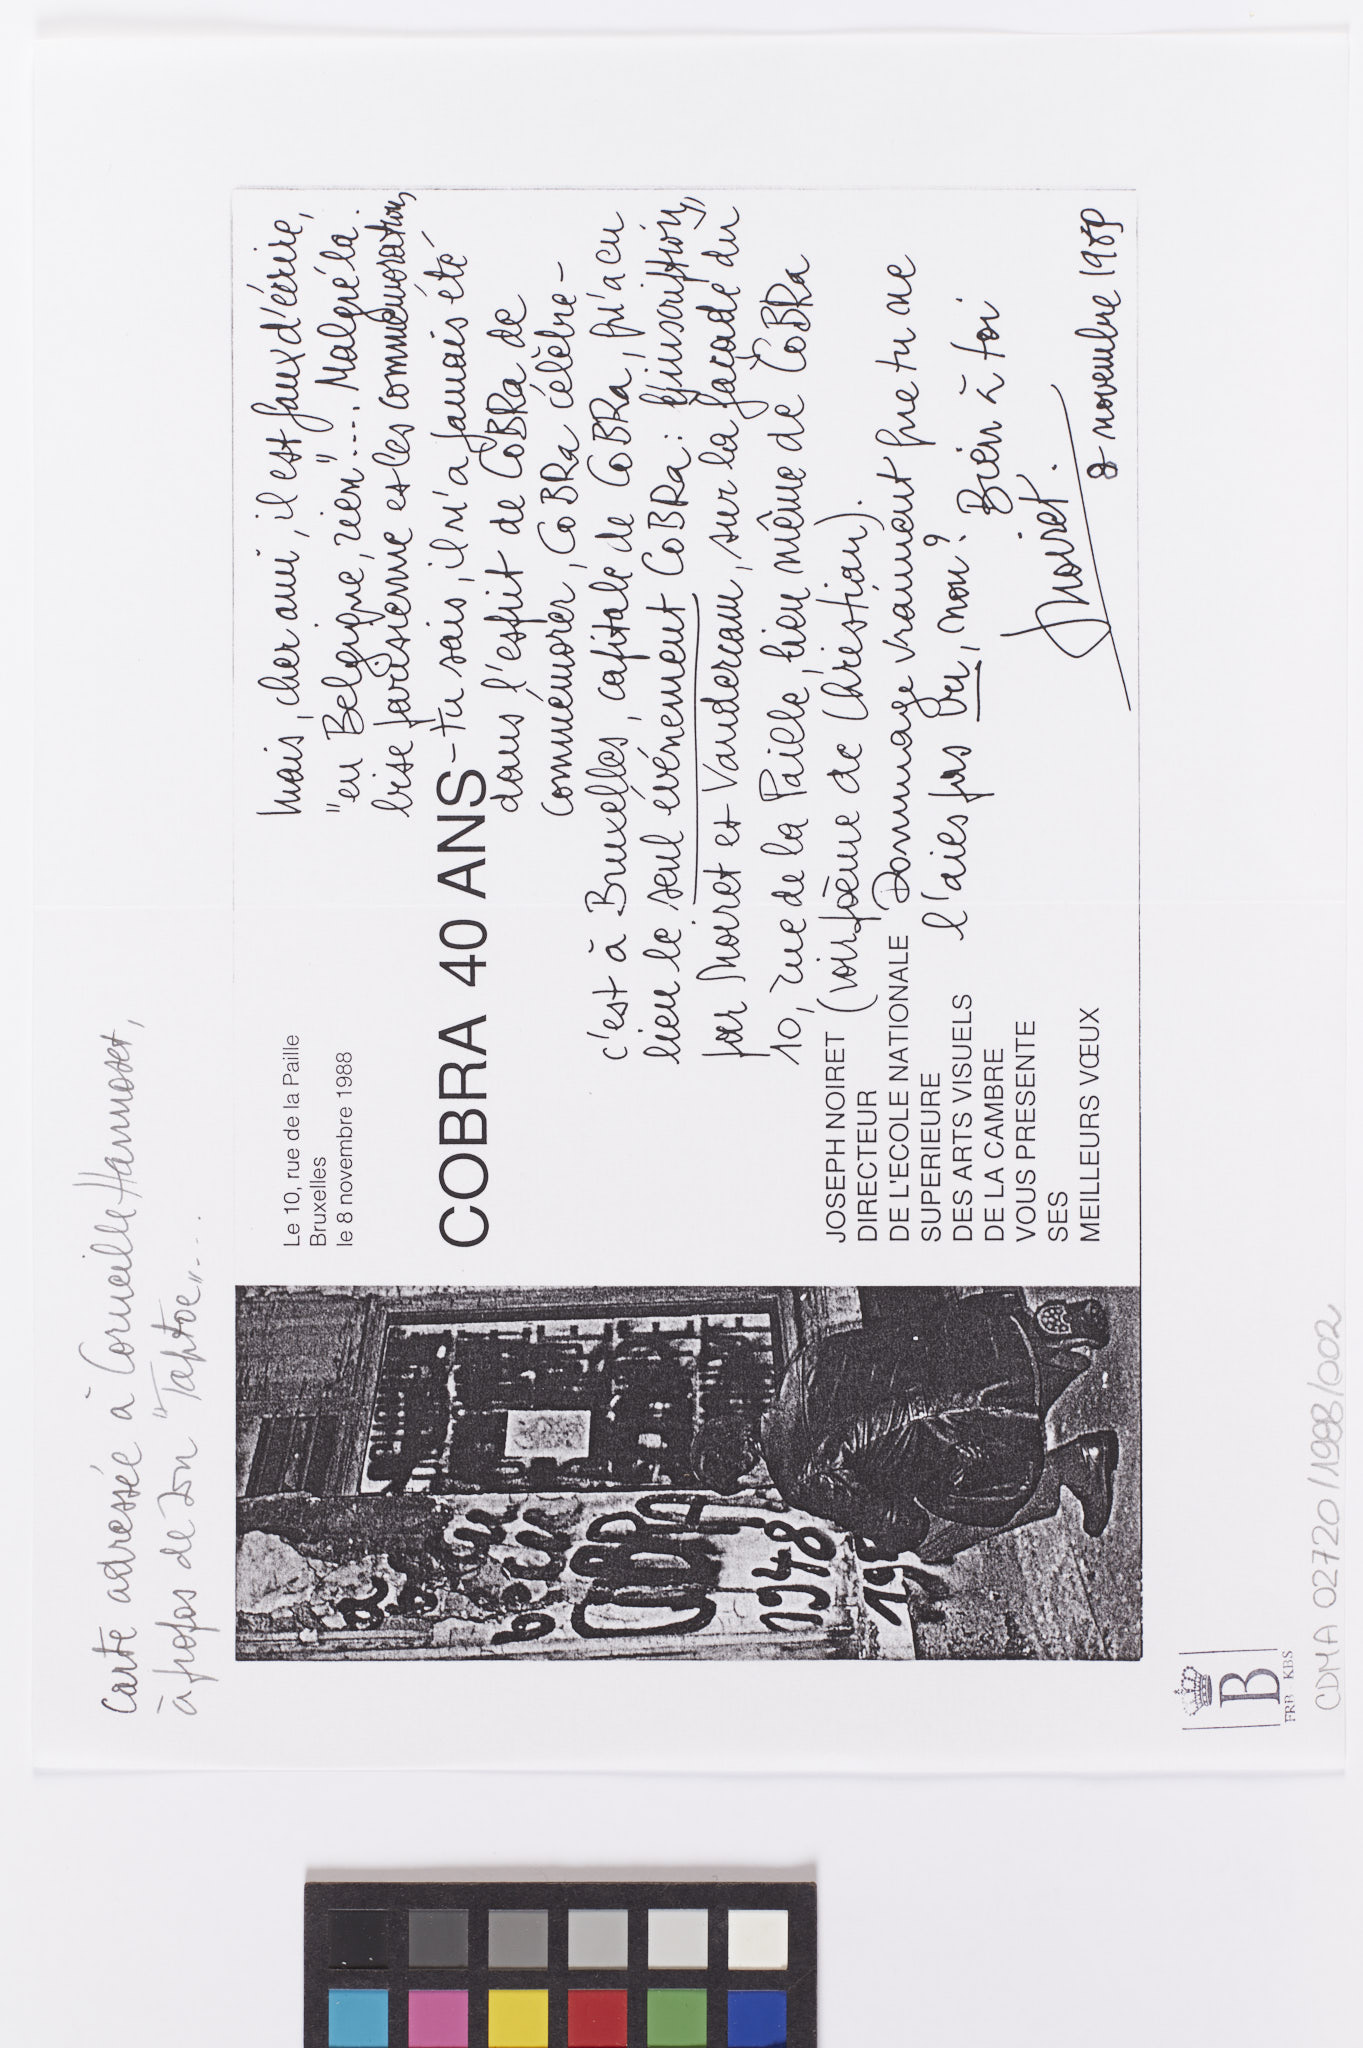 Carte adressée à Corneille Hannoset,
à propos de son "Taptoe"....
Le 10, rue de la Paille
Bruxelles
le 8 novembre 1988
COBRA 40 ANS
JOSEPH NOIRET
DIRECTEUR
DE L'ECOLE NATIONALE
SUPERIEURE
DES ARTS VISUELS
DE LA CAMBRE
VOUS PRESENTE
SES
MEILLEURS VŒUX
Mais, cher ami, il est faux d'écrire,
"en Belgique, rien".... Malgré la
bise parisienne et les commémorations,
- tu sais, il n'a jamais été
dans l'esprit de CoBRa de
commémorer, CoBRa célèbre -
c'est à Bruxelles, capitale de CoBRa, qu'a eu
lieu le seul événement CoBRa : l'inscription,
par Noiret et Vandercam, sur la façade du
10, rue de la Paille, lieu même de CoBRa
(voir poème de Christian).
Dommage vraiment que tu ne
l'aies pas vu, non ? Bien à toi
Noiret.
8 novembre 1988
COBRA
1948
FRB - KBS
B
CDMA 02720/1988/002